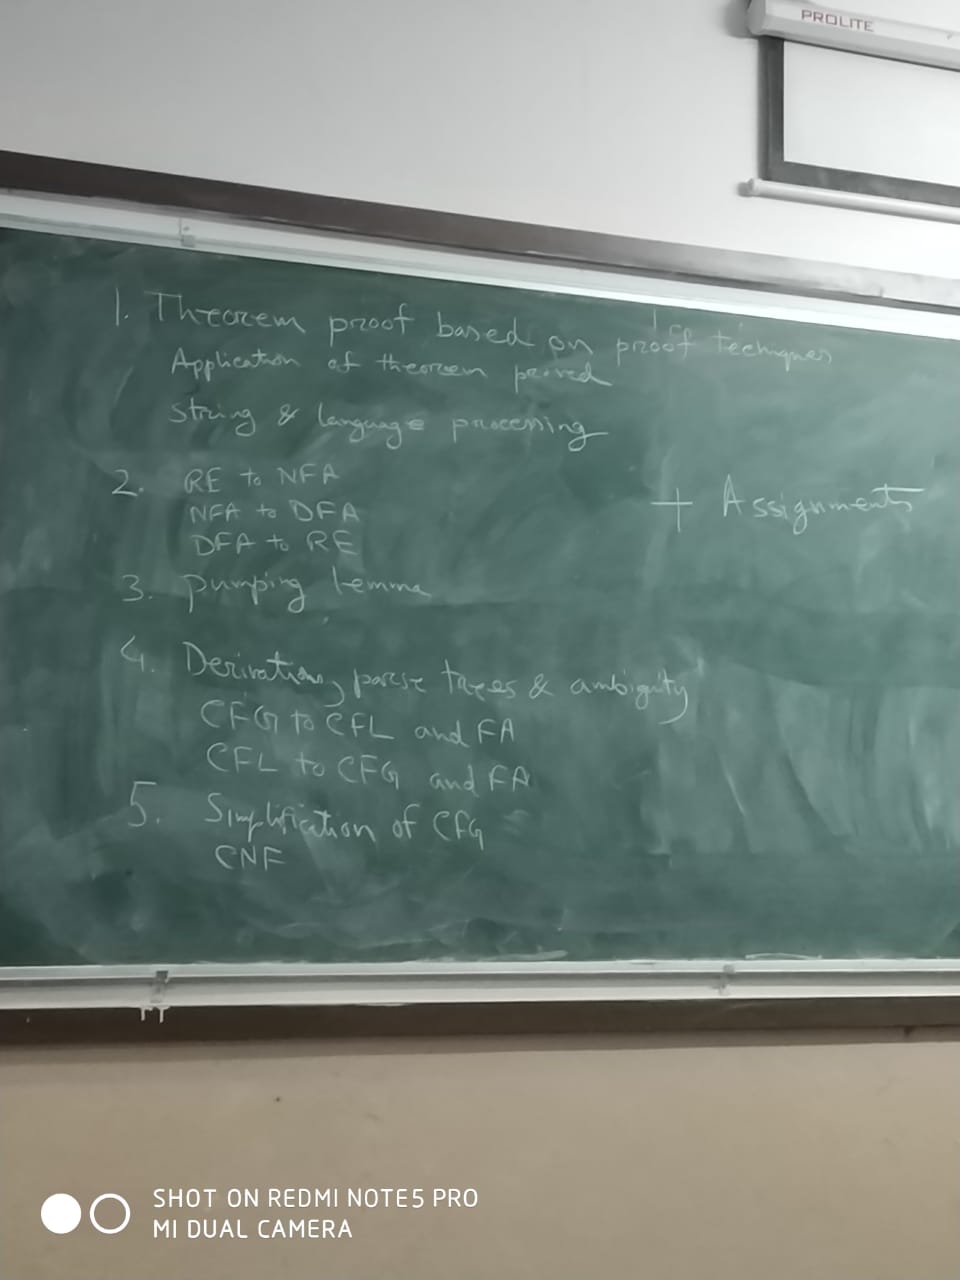 PROLITE
1. Theorem proof based on proof techniques
Application of theorem proved
String & language processing
2. RE to NFA
NFA to DFA
DFA to RE
+ Assignments
3. Pumping Lemma
4. Derivations, parse trees & ambiguity
CFG to CFL and FA
CFL to CFG and FA
5. Simplification of CFG
CNF
SHOT ON REDMI NOTE5 PRO
MI DUAL CAMERA